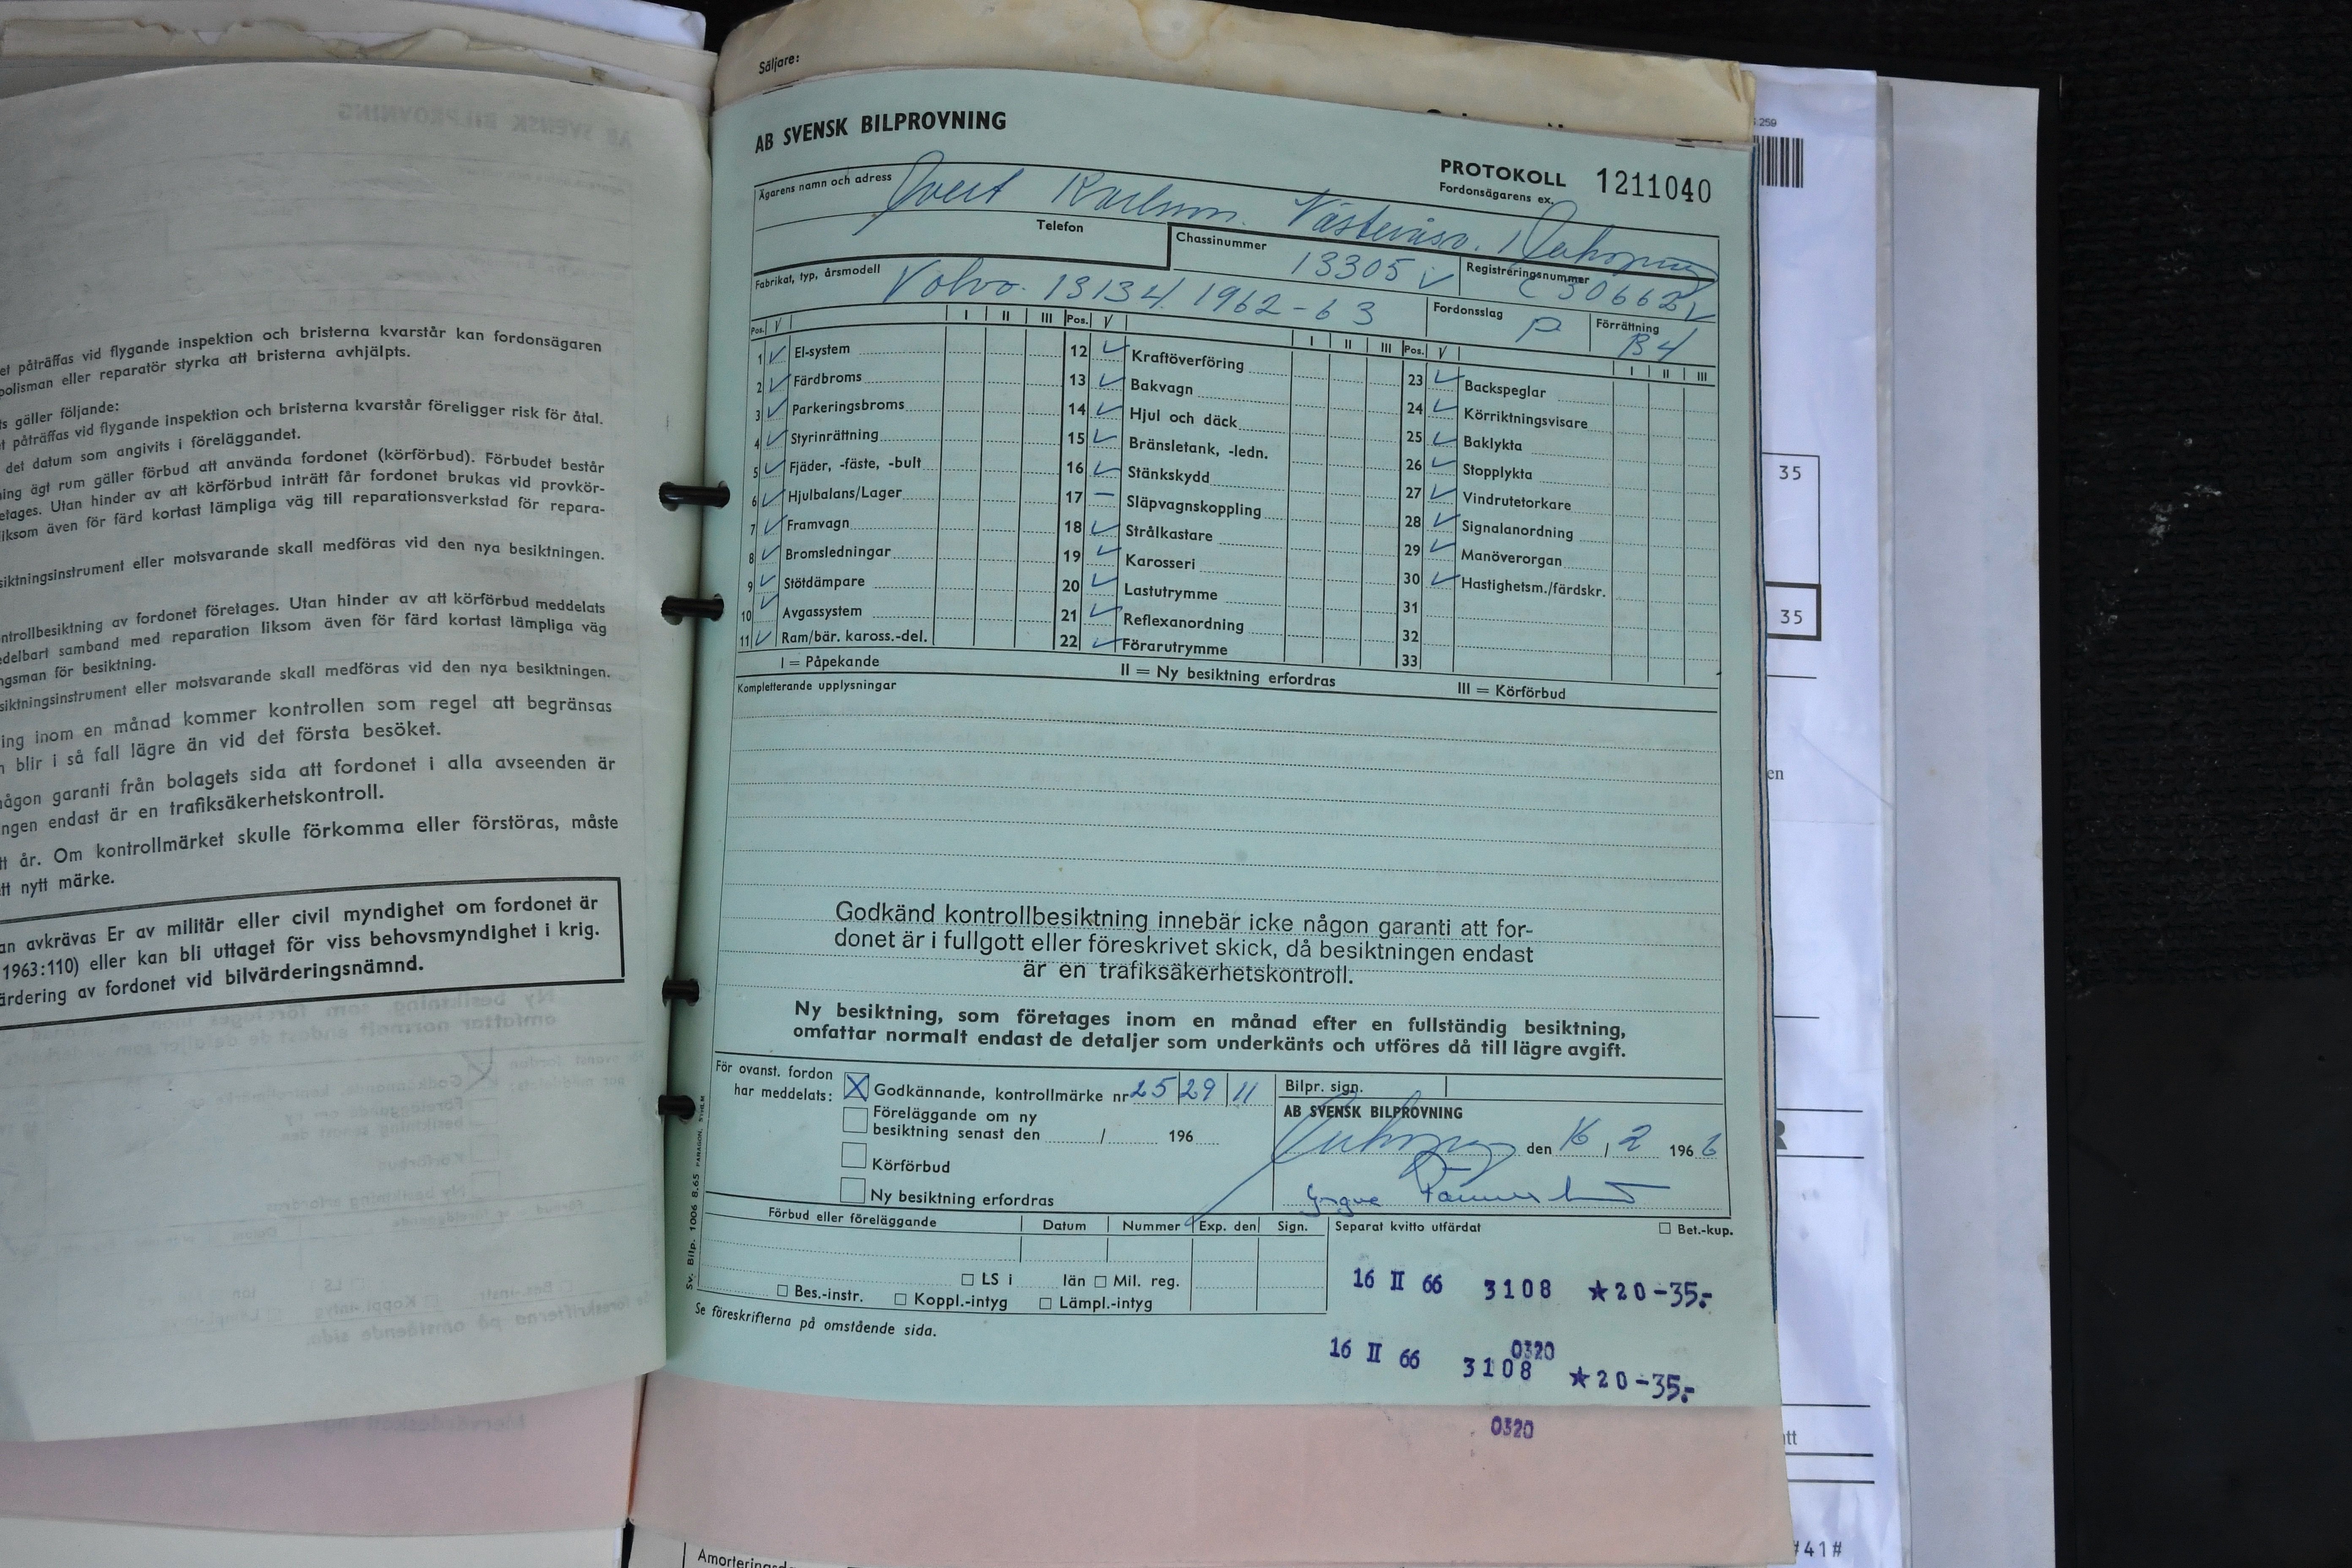 et påträffas vid flygande inspektion och bristerna kvarstår kan fordonsägaren
polisman eller reparatör styrka att bristerna avhjälpts.
ts gäller följande:
t påträffas vid flygande inspektion och bristerna kvarstår föreligger risk för åtal.
det datum som angivits i föreläggandet.
ning ägt rum gäller förbud att använda fordonet (körförbud). Förbudet består
etages. Utan hinder av att körförbud inträtt får fordonet brukas vid provkör-
liksom även för färd kortast lämpliga väg till reparationsverkstad för repara-
siktningsinstrument eller motsvarande skall medföras vid den nya besiktningen.
ntrollbesiktning av fordonet företages. Utan hinder av att körförbud meddelats
edelbart samband med reparation liksom även för färd kortast lämpliga väg
ngsman för besiktning.
siktningsinstrument eller motsvarande skall medföras vid den nya besiktningen.
ning inom en månad kommer kontrollen som regel att begränsas
n blir i så fall lägre än vid det första besöket.
någon garanti från bolagets sida att fordonet i alla avseenden är
ngen endast är en trafiksäkerhetskontroll.
tt år. Om kontrollmärket skulle förkomma eller förstöras, måste
tt nytt märke.
an avkrävas Er av militär eller civil myndighet om fordonet är
1963:110) eller kan bli uttaget för viss behovsmyndighet i krig.
ärdering av fordonet vid bilvärderingsnämnd.
Säljare:
AB SVENSK BILPROVNING
PROTOKOLL 1211040
Fordonsägarens ex.
Ägarens namn och adress Karlsson. Västeråsv.
Telefon
Chassinummer 13305
Registreringsnummer C30662
Fabrikat, typ, årsmodell Volvo. 13134 1962-63
Fordonsslag P
Förrättning B4
Pos. V I II III Pos. V I II III Pos. V I II III
1 ✓ El-system 12 ✓ Kraftöverföring 23 ✓ Backspeglar
2 ✓ Färdbroms 13 ✓ Bakvagn 24 ✓ Körriktningsvisare
3 ✓ Parkeringsbroms 14 ✓ Hjul och däck 25 ✓ Baklykta
4 ✓ Styrinrättning 15 ✓ Bränsletank, -ledn. 26 ✓ Stopplykta
5 ✓ Fjäder, -fäste, -bult 16 ✓ Stänkskydd 27 ✓ Vindrutetorkare
6 ✓ Hjulbalans/Lager 17 — Släpvagnskoppling 28 ✓ Signalanordning
7 ✓ Framvagn 18 ✓ Strålkastare 29 ✓ Manöverorgan
8 ✓ Bromsledningar 19 ✓ Karosseri 30 ✓ Hastighetsm./färdskr.
9 ✓ Stötdämpare 20 ✓ Lastutrymme 31
10 ✓ Avgassystem 21 ✓ Reflexanordning 32
11 ✓ Ram/bär. kaross.-del. 22 ✓ Förarutrymme 33
I = Påpekande II = Ny besiktning erfordras III = Körförbud
Kompletterande upplysningar
Godkänd kontrollbesiktning innebär icke någon garanti att for-
donet är i fullgott eller föreskrivet skick, då besiktningen endast
är en trafiksäkerhetskontroll.
Ny besiktning, som företages inom en månad efter en fullständig besiktning,
omfattar normalt endast de detaljer som underkänts och utföres då till lägre avgift.
För ovanst. fordon
har meddelats:
Godkännande, kontrollmärke nr 25 29 11
Föreläggande om ny
besiktning senast den / 196
Körförbud
Ny besiktning erfordras
Bilpr. sign.
AB SVENSK BILPROVNING
den 16 / 2 1966
Förbud eller föreläggande Datum Nummer Exp. den Sign.
LS i län Mil. reg.
Bes.-instr. Koppl.-intyg Lämpl.-intyg
Separat kvitto utfärdat Bet.-kup.
16 II 66 3108 ★20-35.-
0320
16 II 66 3108 ★20-35.-
0320
Se föreskrifterna på omstående sida.
Sv. Bilp. 1006 8.65 PARAGON, STHLM
259
35
35
en
tt
#41#